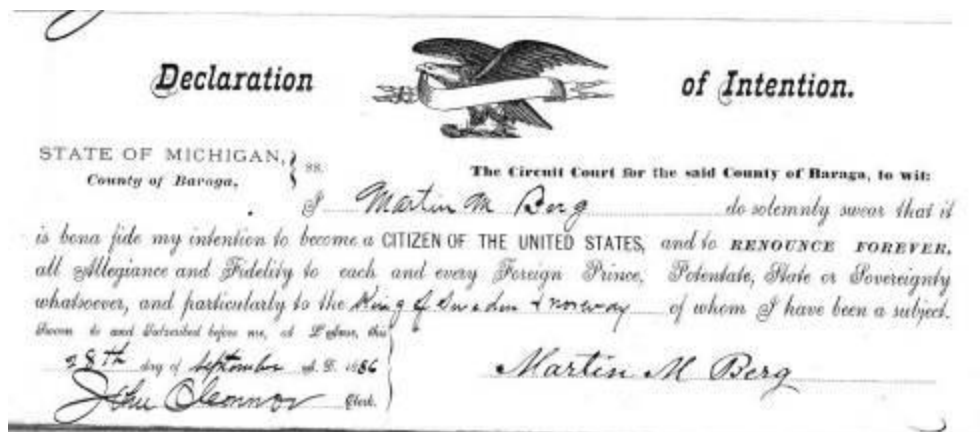 Declaration of Intention.
STATE OF MICHIGAN, } ss.
County of Baraga,
The Circuit Court for the said County of Baraga, to wit:
I Martin M Berg do solemnly swear that it
is bona fide my intention to become a CITIZEN OF THE UNITED STATES, and to RENOUNCE FOREVER,
all Allegiance and Fidelity to each and every Foreign Prince, Potentate, State or Sovereignty
whatsoever, and particularly to the King of Sweden & Norway of whom I have been a subject.
Sworn to and Subscribed before me, at L'Anse, this
28th day of September A. D. 1886
Martin M Berg
John OConnor Clerk.